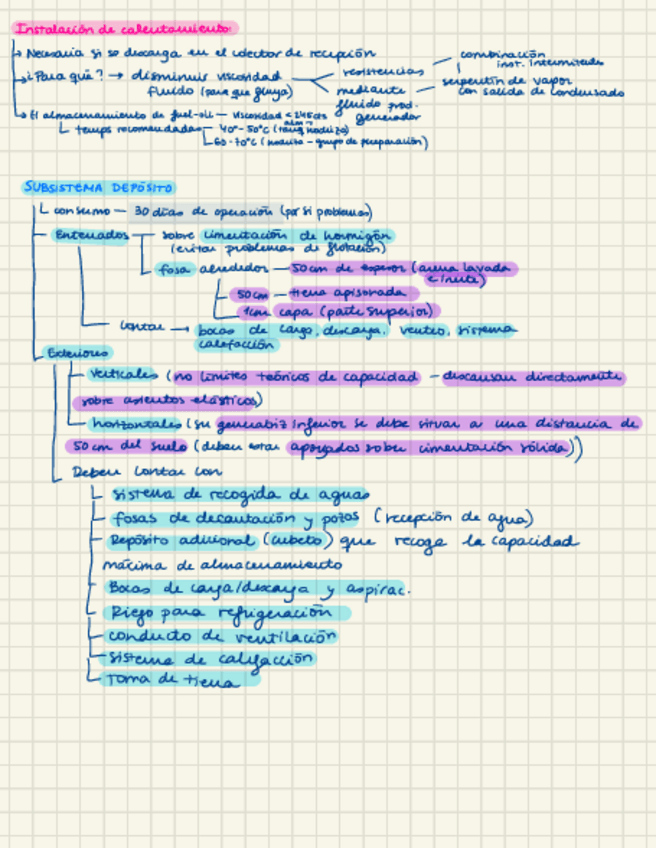 Instalación de calentamiento:
Necesaria si se descarga en el colector de recepción
¿Para qué? → disminuir viscosidad fluido (para que fluya)
resistencias
combinación inst. intermitentes
serpentín de vapor con salida de condensado
mediante fluido prod. generador
El almacenamiento de fuel-oil — viscosidad <
temps recomendadas — 40º-50ºC
60-70ºC (nodriza - grupo de preparación)
SUBSISTEMA DEPÓSITO
consumo — 30 días de operación (por si problemas)
Enterrados — sobre cimentación de hormigón
(evitar problemas de flotación)
fosa alrededor — 50cm de espesor (arena lavada
e inerte)
50cm — tierra apisonada
1cm capa (parte superior)
Contar → bocas de carga, descarga, venteo, sistema
calefacción
Exteriores
verticales (no límites teóricos de capacidad - descansan directamente
sobre asientos elásticos)
horizontales (su generatriz inferior se debe situar a una distancia de
50 cm del suelo (deben estar apoyados sobre cimentación sólida))
Deben contar con
sistema de recogida de aguas
fosas de decantación y pozos (recepción de agua)
Depósito adicional (cubeto) que recoge la capacidad
máxima de almacenamiento
Bocas de carga/descarga y aspirac.
Riego para refrigeración
conducto de ventilación
sistema de calefacción
Toma de tierra